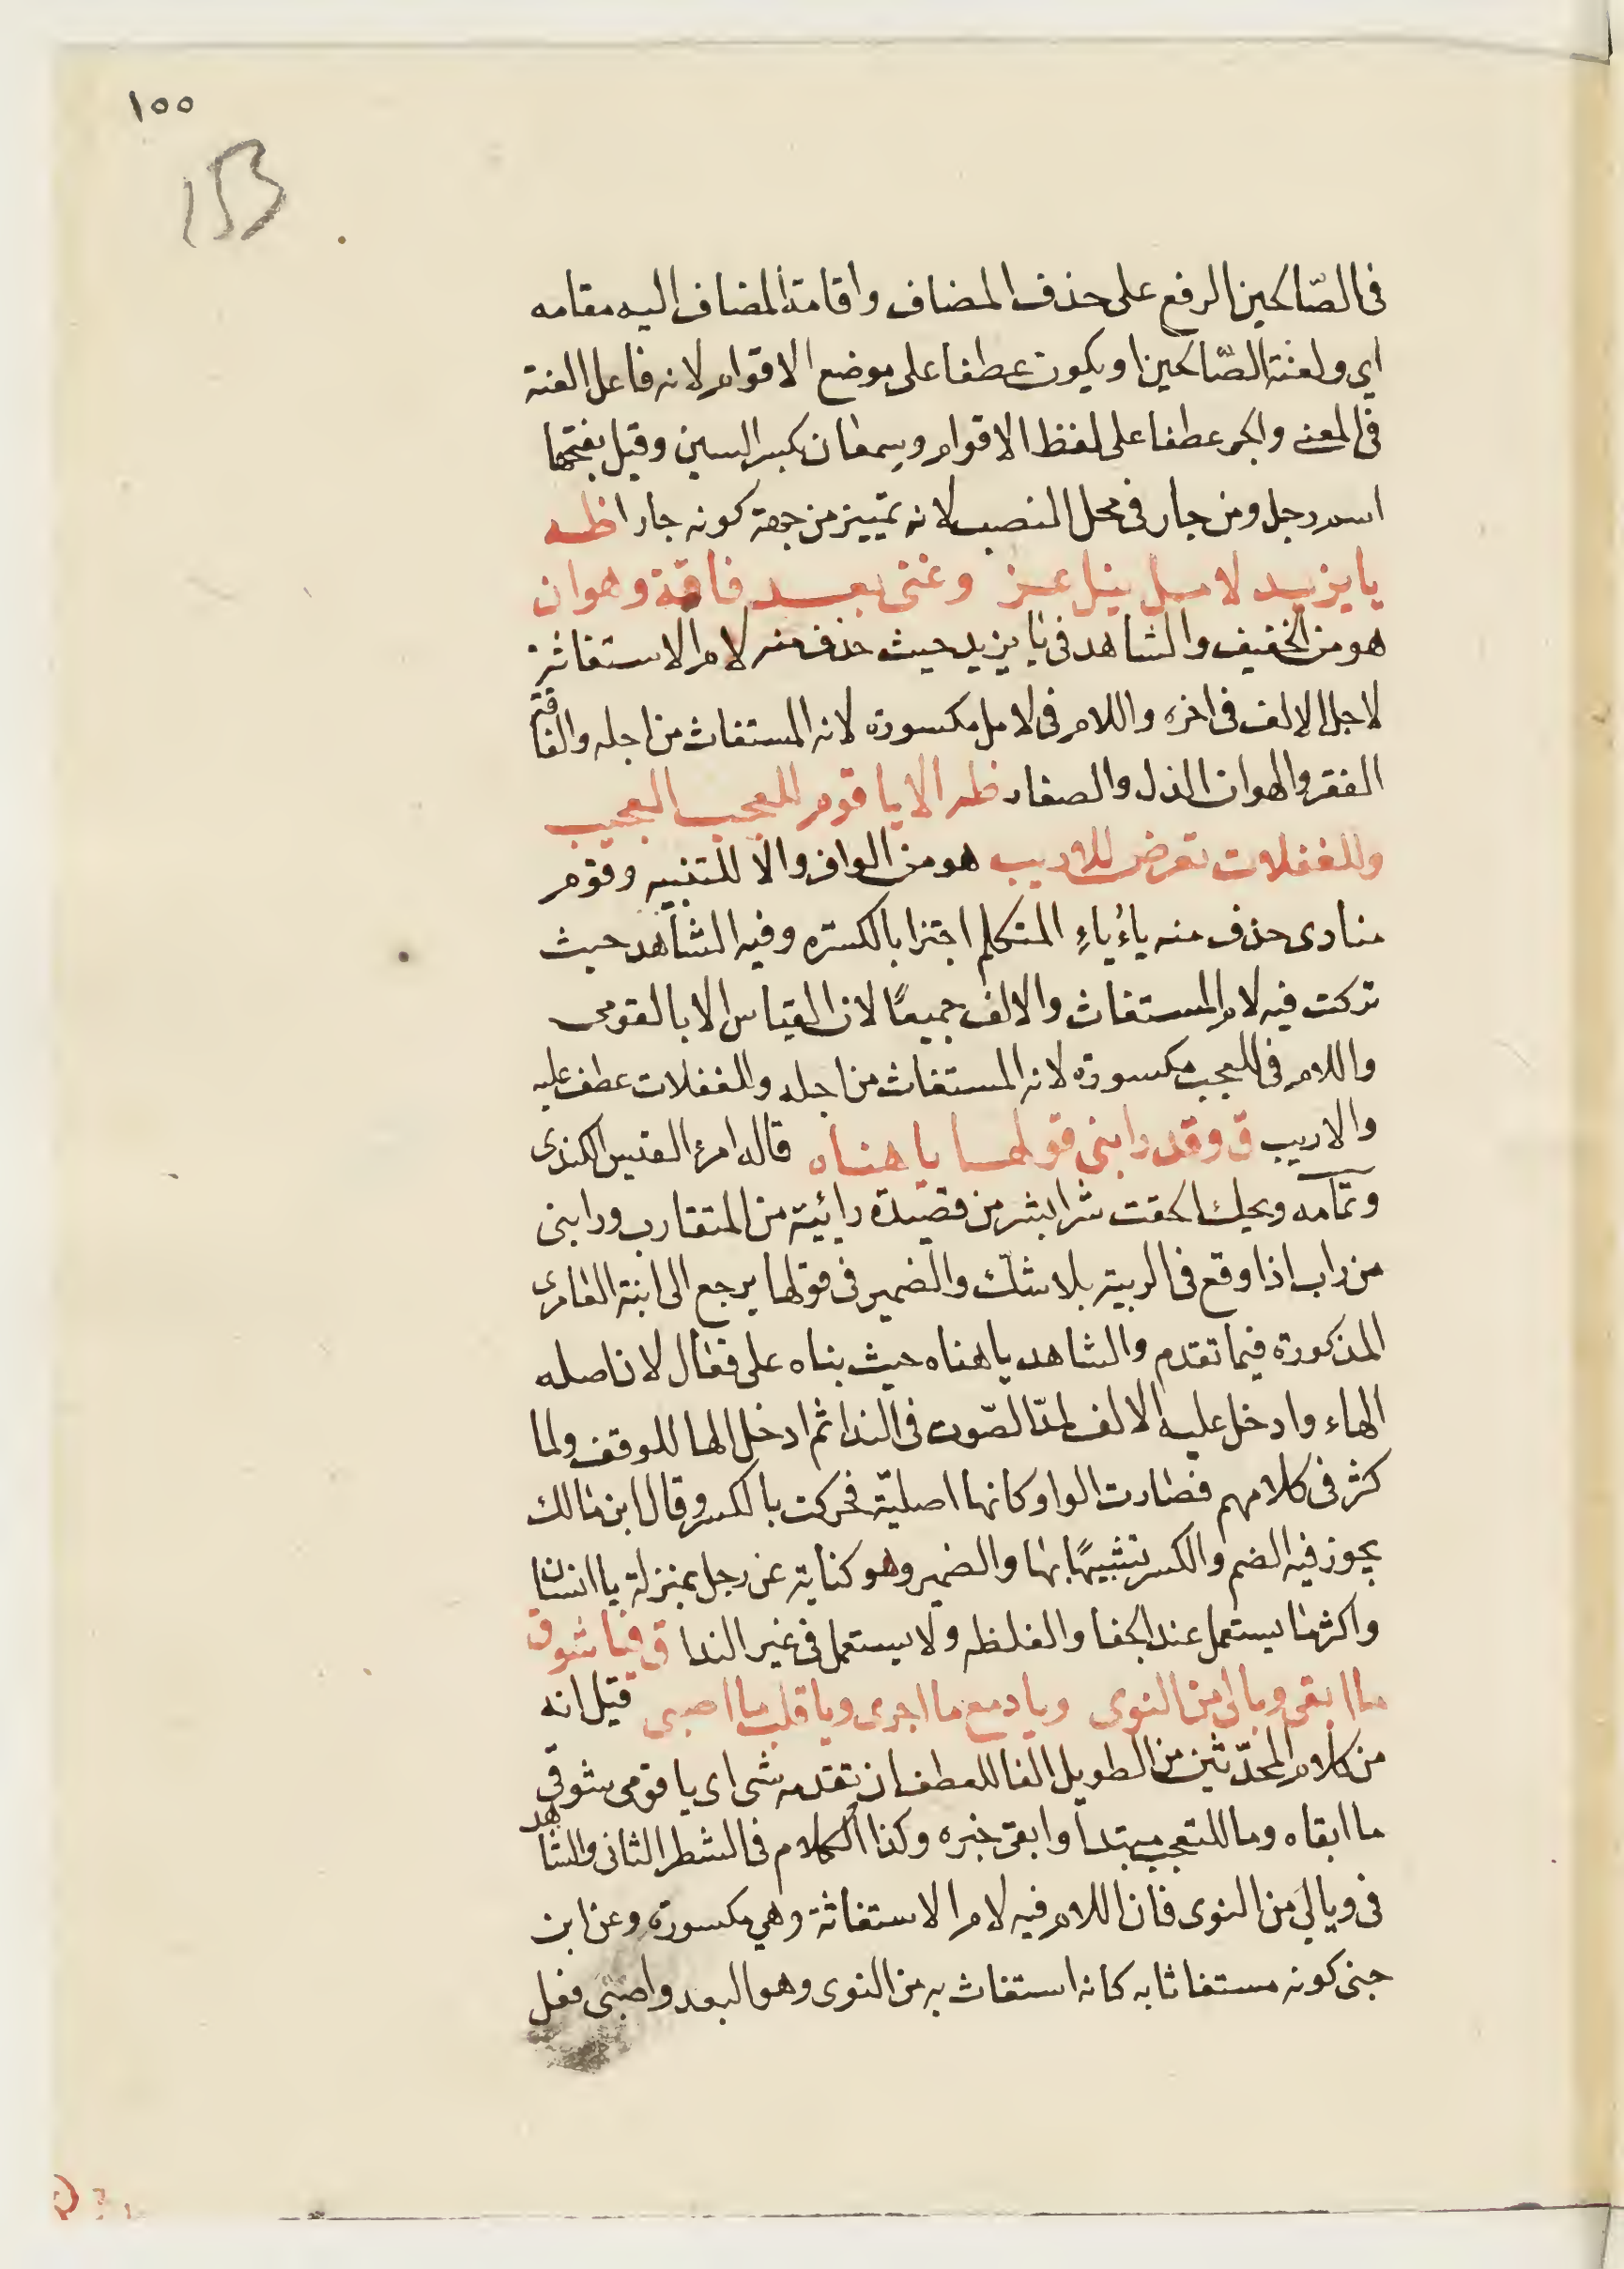 ١٥٥
153
فى الصّالحين الرفع على حذف المضاف واقامة المضاف اليه مقامه
اي ولعنة الصّالحين او يكون عطفا على موضع الاقوام لانه فاعل العنة
فى المعنى والجر عطفا على لفظ الاقوام وسمعان بكسر السين وقيل بفتحها
اسم رجل ومن جار فى محل النصب لانه تمييز من جهة كونه جارا ظه
يا يزيد لامل نيل عز وغنى بعد فاقة وهوان
هو من الخفيف والشاهد فى يا يزيد حيث حذف منه لام الاستغاثة
لاجل الالف فى اخره واللام فى لامل مكسورة لانه المستغاث من اجله والفاقة
الفقر والهوان الذل والصغار ظه الا يا قوم للعجب العجيب
وللغفلات تعرض للاريب هو من الوافر والا للتنبيه وقوم
منادى حذف منه ياء ياءِ المتكلم اجتزا بالكسره وفيه الشاهد حيث
تركت فيه لام المستغاث والالف جميعًا لان القياس الا يا لقومى
واللام فى للعجب مكسورة لانه المستغاث من اجله والغفلات عطف عليه
والاريب ق وقد رابنى قولها يا هناه قاله امرئ القيس الكندى
وتمامه ويحك الحقت شرا بشر من قصيدة رائية من المتقارب ورابنى
من راب اذا وقع فى الريبة بلا شك والضمير فى قولها يرجع الى ابنة العامرى
المذكورة فيما تقدم والشاهد يا هناه حيث بناه على فعال لان اصله
الهاء وادخل عليه الالف لمدّ الصّوت فى الندا ثم ادخل الها للوقف ولما
كثر فى كلامهم فصارت الواو كانها اصليّة فحركت بالكسر وقال ابن مالك
يجوز فيه الضم والكسر تشبيهًا بها والضمير وهو كناية عن رجل بمنزلة يا انسان
واكثر ما يستعمل عند الجفا والغلظه ولا يستعمل فى غير الندا ق فيا شوق
ما ابقى ويا لى من النوى ويا دمع ما اجرى ويا قلب ما اصبى قيل انه
من كلام المحدّثين من الطويل الفا للعطف ان تقدمه شى اى يا قومى شوقى
ما ابقاه وما للتعجب مبتدا وابقى خبره وكذا الكلام فى الشطر الثانى والشاهد
فى ويا لي من النوى فان اللام فيه لام الاستغاثة وهي مكسورة وعن ابن
جنى كونه مستغاثا به كانه استغاث به من النوى وهو البعد واصبَى فعل